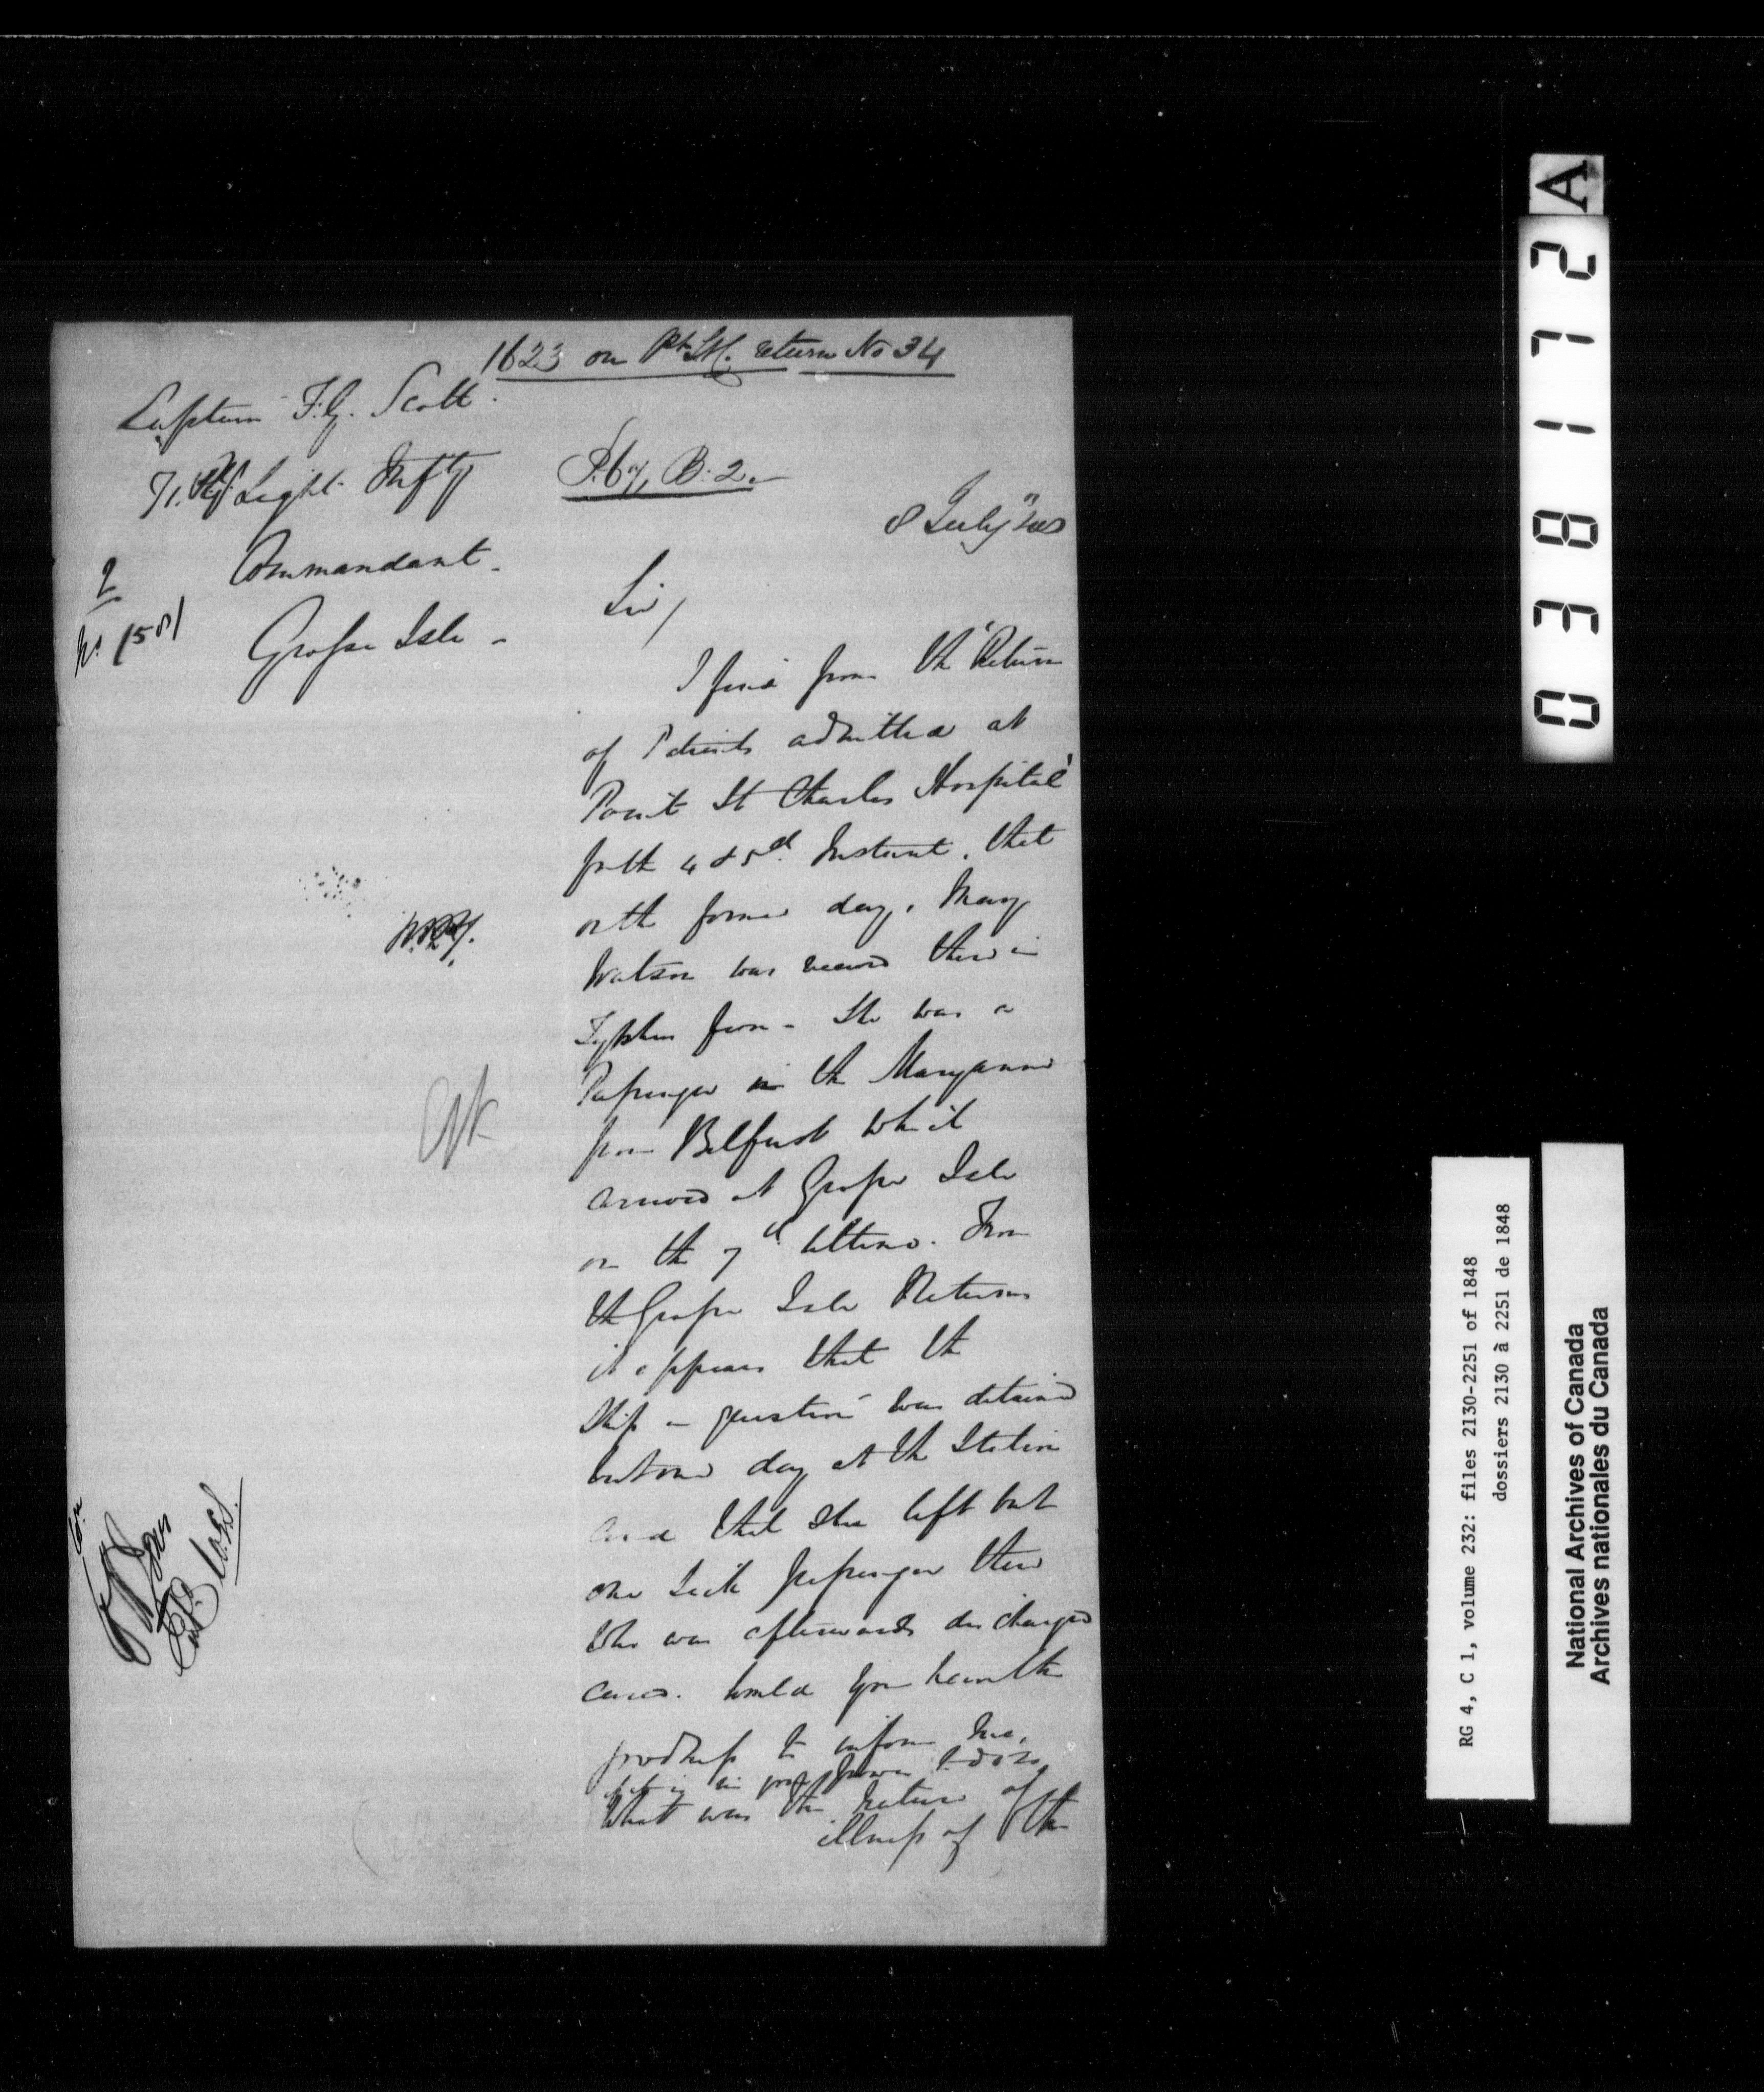 1623 on Pt St C. return No 34
Captain F.G. Scott
71. Regt Light Infty
P. 67, B. 2.
8 July
Commandant
2
No 1581
Grosse Isle -
Sir,
I find from the "Return
of Patients admitted at
Point St Charles Hospital"
for the 4 & 5th Instant, that
on the former day, Mary
Watson was received there in
Typhus fever - She was a
Passenger in the Maryanne
from Belfast which
arrived at Grosse Isle
on the 7th Ultimo. From
the Grosse Isle Returns
it appears that the
Ship in question was detained
but one day at the Station
and that she left but
one sick passenger there
who was afterwards discharged
cured. Would you have the
goodness to inform me,
if it is in your power to do so,
what was the nature of
illness of the
0 3 8 1 7 2 A
RG 4, C 1, volume 232: files 2130-2251 of 1848
dossiers 2130 à 2251 de 1848
National Archives of Canada
Archives nationales du Canada